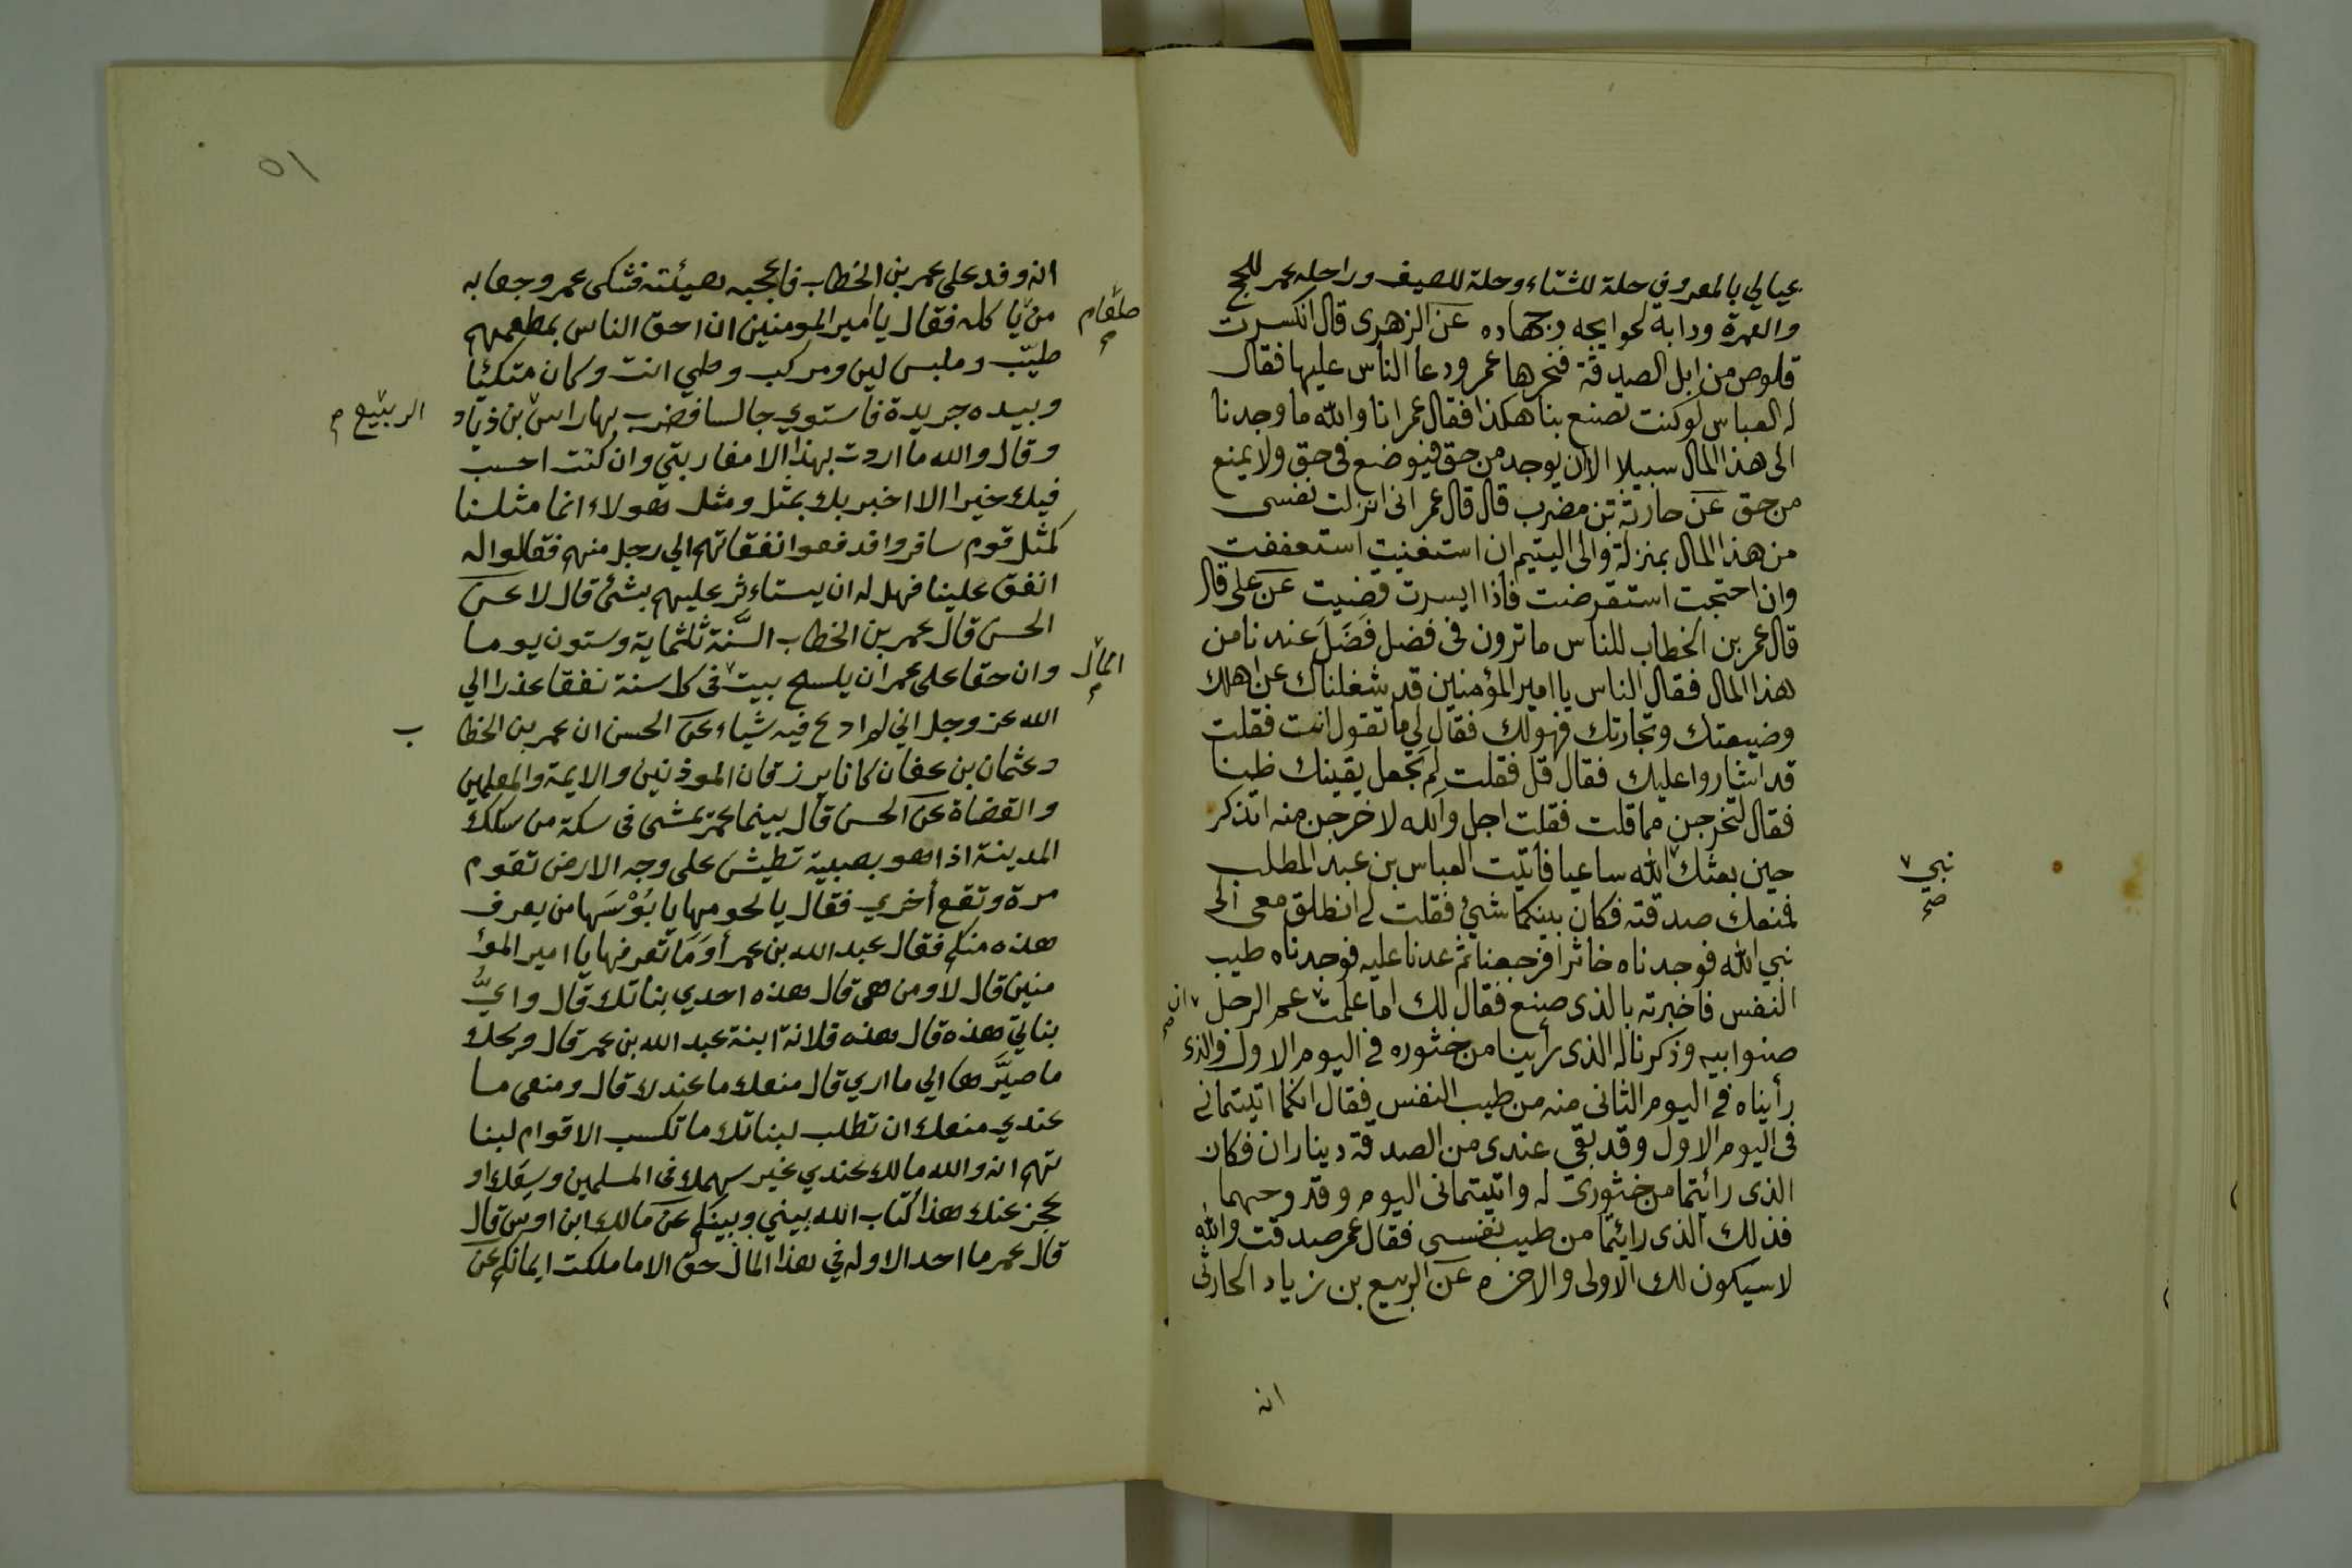 عيالي بالمعروف حلة للشتاء وحلة للصيف وراحله عمر للحج
والعمرة ودابة لحوايجه وجهاده عن الزهرى قال انكسرت
قلوص من ابل الصدقة فنحرها عمر ودعا الناس عليها فقال
له العباس لو كنت تصنع بنا هكذا فقال عمر انا والله ما وجدنا
الى هذا المال سبيلا الا ان يوجد من حق فيوضع فى حق ولا يمنع
من حق عن حارثة بن مضرب قال قال عمر انى انزلت نفسى
من هذا المال بمنزلة والى اليتيم ان استغنيت استعففت
وان احتجت استقرضت فاذا ايسرت قضيت عن على قال
قال عمر بن الخطاب للناس ما ترون فى فضل فَضَلَ عندنا من
هذا المال فقال الناس يا امير المؤمنين قد شغلناك عن اهلك
وضيعتك وتجارتك فهو لك فقال لي ما تقول انت فقلت
قد اشاروا عليك فقال قل فقلت لم تجعل يقينك ظنا
فقال لتخرجن مما قلت فقلت اجل والله لاخرجن منه اتذكر
حين بعثك الله ساعيا فاتيت العباس بن عبد المطلب
نبي
صح
فمنعك صدقته فكان بينكما شئ فقلت لى انطلق معى الى
نبي الله فوجدناه خاثرا فرجعنا ثم عدنا عليه فوجدناه طيب
النفس فاخبرته بالذى صنع فقال لك اما علمت عم الرجل
ان
صنوابيه وذكرنا له الذى رأينا من خثوره فى اليوم الاول والذى
رأيناه فى اليوم الثانى منه من طيب النفس فقال انكما اتيتمانى
فى اليوم الاول وقد بقي عندى من الصدقة ديناران فكان
الذى رائيتما من خثورى له واتيتمانى اليوم وقد وجهتهما
فذلك الذى رائيتما من طيب نفسى فقال عمر صدقت والله
لاسيكون لك الاولى والاخره عن الربيع بن زياد الحارثى
انه
٥١
انه وفد على عمر بن الخطاب فاعجبه هيئته فشكى عمر وجعا به
من ياكله فقال يا امير المومنين ان احق الناس بمطعمهم
طعام
طيّب وملبس لين ومركب وطي انت وكان متكئا
وبيده جريدة فاستوي جالسا فضرب بها راس بن ذياد
الربيع
وقال والله ما اردت بهذا الا مقاربتي وان كنت احسب
فيك خيرا الا اخبر بك بمثل ومثل هولاء انما مثلنا
كمثل قوم سافروا فدفعوا نفقاتهم الي رجل منهم فقالوا له
انفق علينا فهل له ان يستاءثر عليهم بشئ قال لا عن
الحسن قال عمر بن الخطاب السَّنة ثلثماية وستون يوما
وان حقا على عمر ان يلسح بيت فى كل سنة نفقا عذرا الي
المال
الله عز وجل اني لم ادع فيه شياء عن الحسن ان عمر بن الخطا
ب
وعثمان بن عفان كانا يرزقان الموذنين والايمة والمعلمين
والقضاة عن الحسن قال بينما عمر يمشى فى سكة من سكك
المدينة اذا هو بصبية تطيش على وجه الارض تقوم
مرة وتقع أخري فقال يا لحومها يا بُؤْسَها من يعرف
هذه منكم فقال عبد الله بن عمر أوَمَا تعرفها يا امير المؤ
منين قال لا ومن هى قال هذه احدي بناتك قال وايُّ
بناتي هذه قال هذه فلانة ابنة عبد الله بن عمر قال ويحك
ما صيَّرها الي ما اري قال منعك ما عندك قال ومنعى ما
عندي منعك ان تطلب لبناتك ما تكسب الاقوام لبنا
تهم انه والله مالك عندي غير سهمك فى المسلمين وسعك او
عجز عنك هذا كتاب الله بيني وبينكم عن مالك ابن اوس قال
قال عمر ما احد الا وله في هذا المال حق الا ما ملكت ايمانكم عن